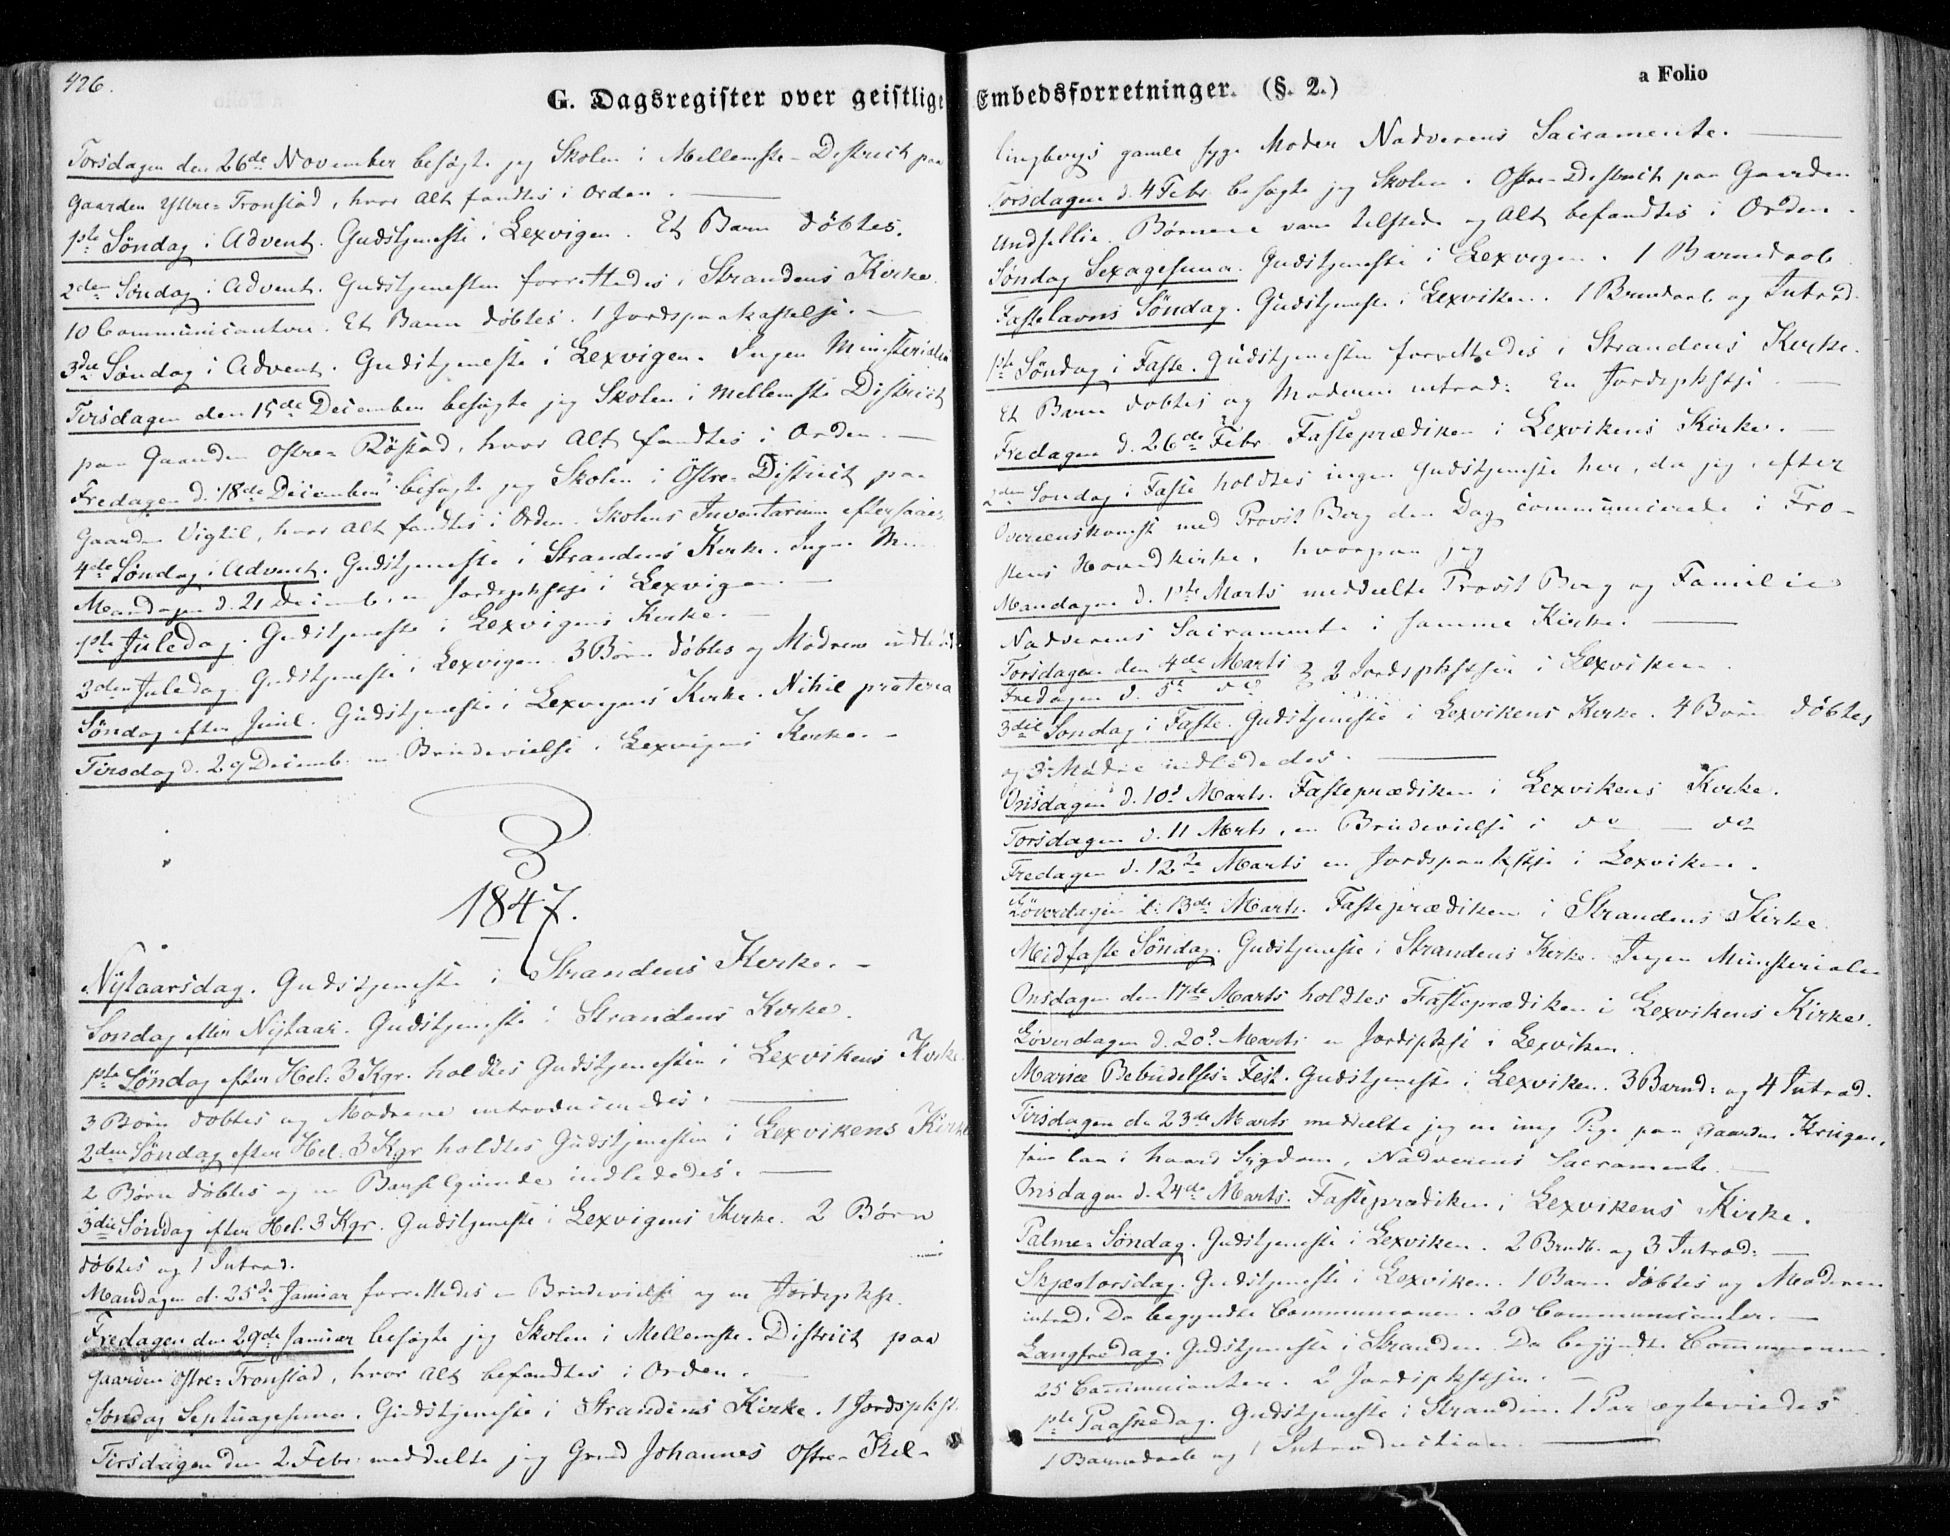 426.
G. Dagsregister over geistlige Embedsforretninger. (§. 2.)
a Folio
Torsdagen den 26de November besøgte jeg Skolen i Mellemste-District paa
Gaarden Yttre-Tronstad, hvor Alt fandtes i Orden.
1ste Søndag i Advent. Gudstjeneste i Lexvigen. Et Barn døbtes.
2den Søndag i Advent. Gudstjenesten forrettedes i Strandens Kirke.
10 Communicanter. Et Barn døbtes. 1 Jordspaakastelse.
3die Søndag i Advent. Gudstjeneste i Lexvigen. Ingen Ministerialia
Tirsdagen den 15de December besøgte jeg Skolen i Mellemste District
paa Gaarden Østre-Røstad, hvor Alt fandtes i Orden.
Fredagen d. 18de December besøgte jeg Skolen i Østre-District paa
Gaarden Vigtil, hvor Alt fandtes i Orden. Skolens Inventarium eftersaaes.
4de Søndag i Advent. Gudstjeneste i Strandens Kirke. Ingen Min.
Mandagen d. 21 Decemb. en Jordspkstse i Lexvigen.
1ste Juledag. Gudstjeneste i Lexvigens Kirke.
2den Juledag. Gudstjeneste i Lexvigen. 3 Børn døbtes og Mødrene indled.
Søndag efter Juul. Gudstjeneste i Lexvigens Kirke. Nihil præterea
Tirsdag d. 29 Decemb. en Brudevielse i Lexvigens Kirke.
1847.
Nytaarsdag. Gudstjeneste i Strandens Kirke.
Søndag efter Nytaar. Gudstjeneste i Strandens Kirke.
1ste Søndag efter Hel: 3 Kgr. holdtes Gudstjenesten i Lexvikens Kirke
3 Børn døbtes og Mødrene introduceredes.
2den Søndag efter Hel: 3 Kgr holdtes Gudstjenesten i Lexvikens Kirke
2 Børn døbtes og en Barselqvinde indlededes.
3die Søndag efter Hel. 3 Kgr. Gudstjeneste i Lexvigens Kirke. 2 Børn
døbtes og 1 Introd.
Mandagen d. 25de Januar forrettedes en Brudevielse og en Jordspkst.
Fredagen den 29de Januar besøgte jeg Skolen i Mellemste-District paa
Gaarden Østre-Tronstad, hvor Alt befandtes i Orden.
Søndag Septuagesima. Gudstjeneste i Strandens Kirke. 1 Jordspkst.
Tirsdagen den 2 Febr. meddeelte jeg Johannes Østre-
gamle syge Moder Nadverens Sacramente.
Torsdagen d. 4 Febr. besøgte jeg Skolen i Østre-District paa Gaarden
Børnene vare tilstede og Alt befandtes i Orden.
Søndag Sexagesima. Gudstjeneste i Lexvigen. 1 Barnedaab
Fastelavns Søndag. Gudstjeneste i Lexviken. 1 Brnedaab og Introd.
1ste Søndag i Faste. Gudstjenesten forrettedes i Strandens Kirke.
Et Barn døbtes og Moderen introd: En Jordspkstse
Fredagen d. 26de Febr. Fasteprædiken i Lexvikens Kirke.
2den Søndag i Faste holdtes ingen Gudstjeneste her, da jeg, efter
Overeenskomst med Provst Berg den Dag communicerede i Fro-
stens Hovedkirke, hvorpaa jeg
Mandagen d. 1ste Marts meddeelte Provst Berg og Familie
Nadverens Sacramente i samme Kirke.
Torsdagen den 4de Marts
Fredagen d. 5te do } 2 Jordspkstser i Lexviken.
3die Søndag i Faste. Gudstjeneste i Lexvikens Kirke. 4 Børn døbtes
og 3 Mødre indlededes.
Onsdagen d. 10d Marts. Fasteprædiken i Lexvikens Kirke.
Torsdagen d. 11 Marts, en Brudevielse i do – do
Fredagen d. 12te Marts en Jordspaakstse i Lexviken.
Løverdagen d. 13de Marts. Fasteprædiken i Strandens Kirke.
Midfaste Søndag. Gudstjeneste i Strandens Kirke. Ingen Ministerialia
Onsdagen den 17de Marts holdtes Fasteprædiken i Lexvikens Kirke.
Løverdagen d. 20d Marts en Jordspkst i Lexviken.
Mariæ Bebudelses-Fest. Gudstjeneste i Lexviken. 3 Barnd: og 4 Introd.
Tirsdagen den 23de Marts meddeelte jeg en ung Pige paa Gaarden
som laa i haard Sygdom, Nadverens Sacramente.
Onsdagen d. 24de Marts. Fasteprædiken i Lexvikens Kirke.
Palme-Søndag. Gudstjeneste i Lexviken. 2 Brndb. og 3 Introd:
Skjærtorsdag. Gudstjeneste i Lexviken. 1 Barn døbtes og Moderen
introd. Da begyndte Communionen. 20 Communicanter.
Langfredag. Gudstjeneste i Stranden. Da begyndte Communionen.
25 Communicanter. 2 Jordspkstser.
1ste Paaskedag. Gudstjeneste i Stranden. 1 Par ægteviedes
1 Barnedaab og 1 Introduction